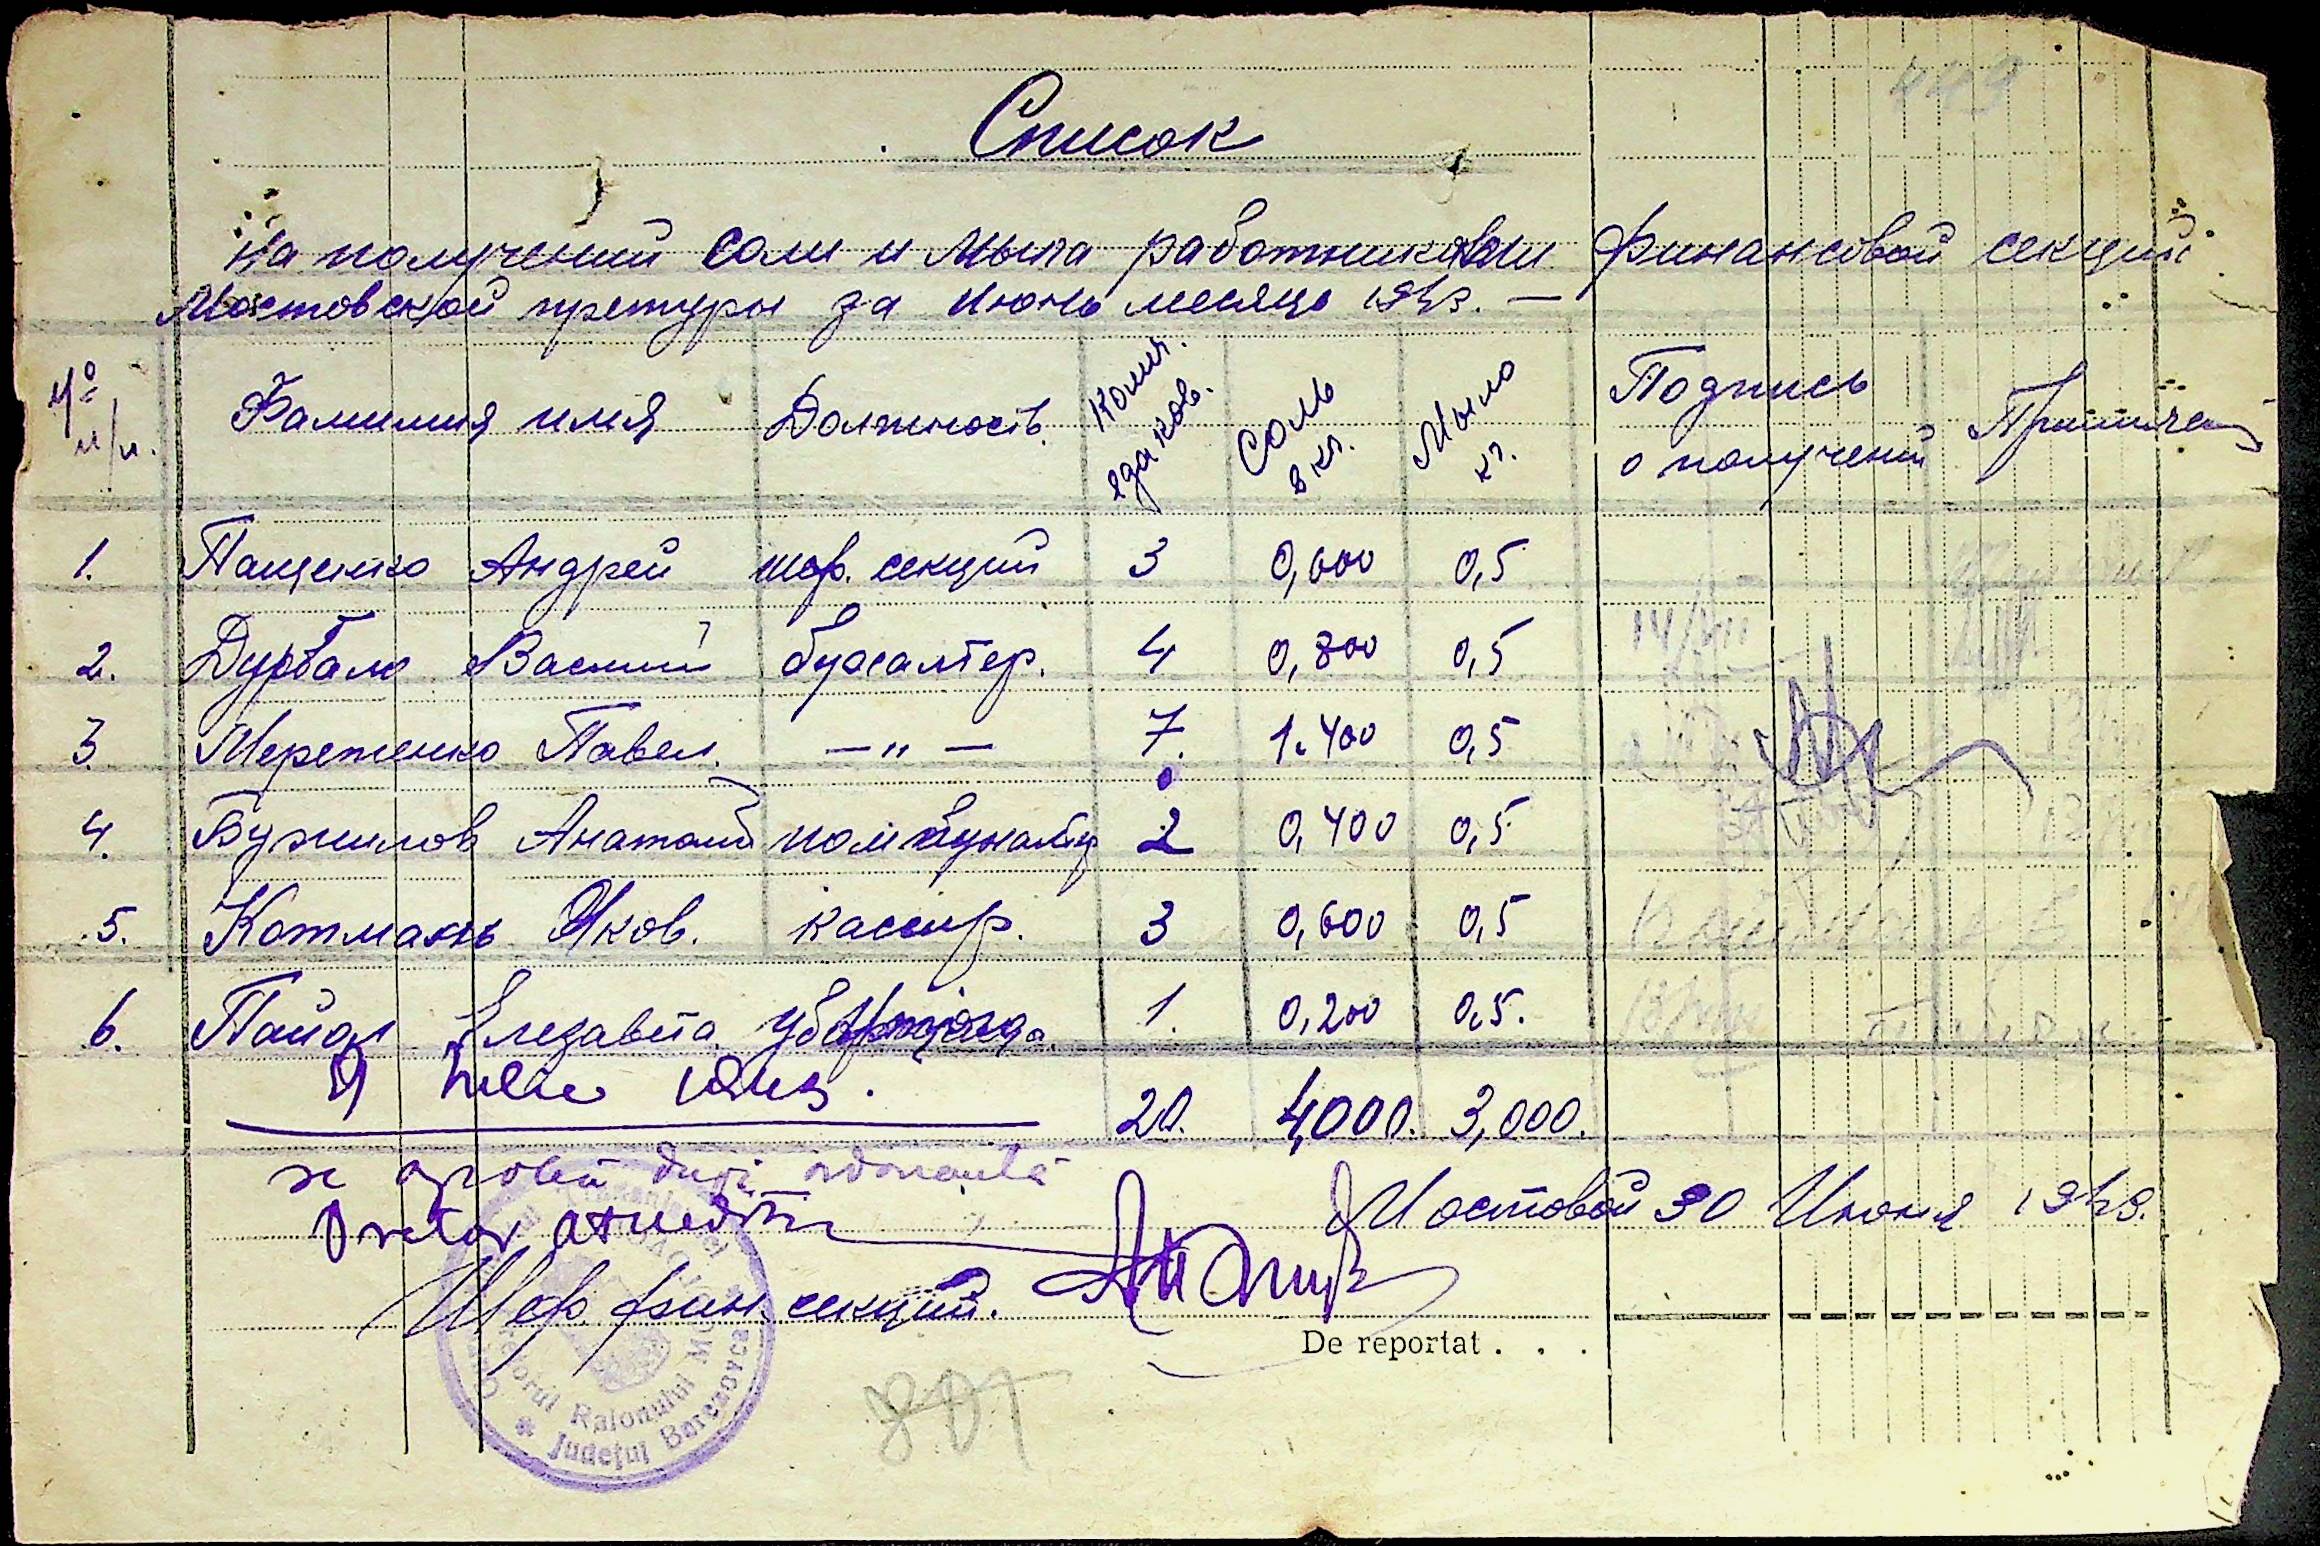 449
Список
на получений соли и мыла работниками финансовой секций
Мостовской претуры за Июнь месяць 1943. —
№ п/п. Фамилия имя Должность. Колич. едаков. Соль в кг. Мыло кг. Подпись о получений Примечан
1. Пащенко Андрей шеф. секций 3 0,600 0,5
2. Дурбало Василий бухгалтер. 4 0,800 0,5 14/VII
3. Мереженко Павел. —〃— 7. 1.400 0,5
4. Бужилов Анатолий пом 2 0,400 0,5
5. Котмань Яков. кассир. 3 0,600 0,5
6. Пайол Елезавета 1. 0,200 0,5.
9 Iulie 1943.
20. 4,000. 3,000.
se aprobă după ordonanță
Мостовой 30 Июня 1943.
Pretor
Шеф. фин. секций.
De reportat . . .
Pretorul Raionului
* Județul Berezovca
801